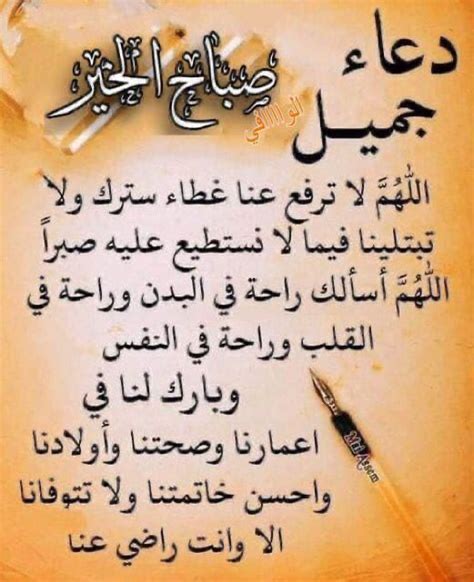 دعاء
جميل
صباح الخير
الوااااافي
اللهُمَّ لا ترفع عنا غطاء سترك ولا
تبتلينا فيما لا نستطيع عليه صبراً
اللهُمَّ أسألك راحة في البدن وراحة في
القلب وراحة في النفس
وبارك لنا في
اعمارنا وصحتنا وأولادنا
واحسن خاتمتنا ولا تتوفانا
الا وانت راضي عنا